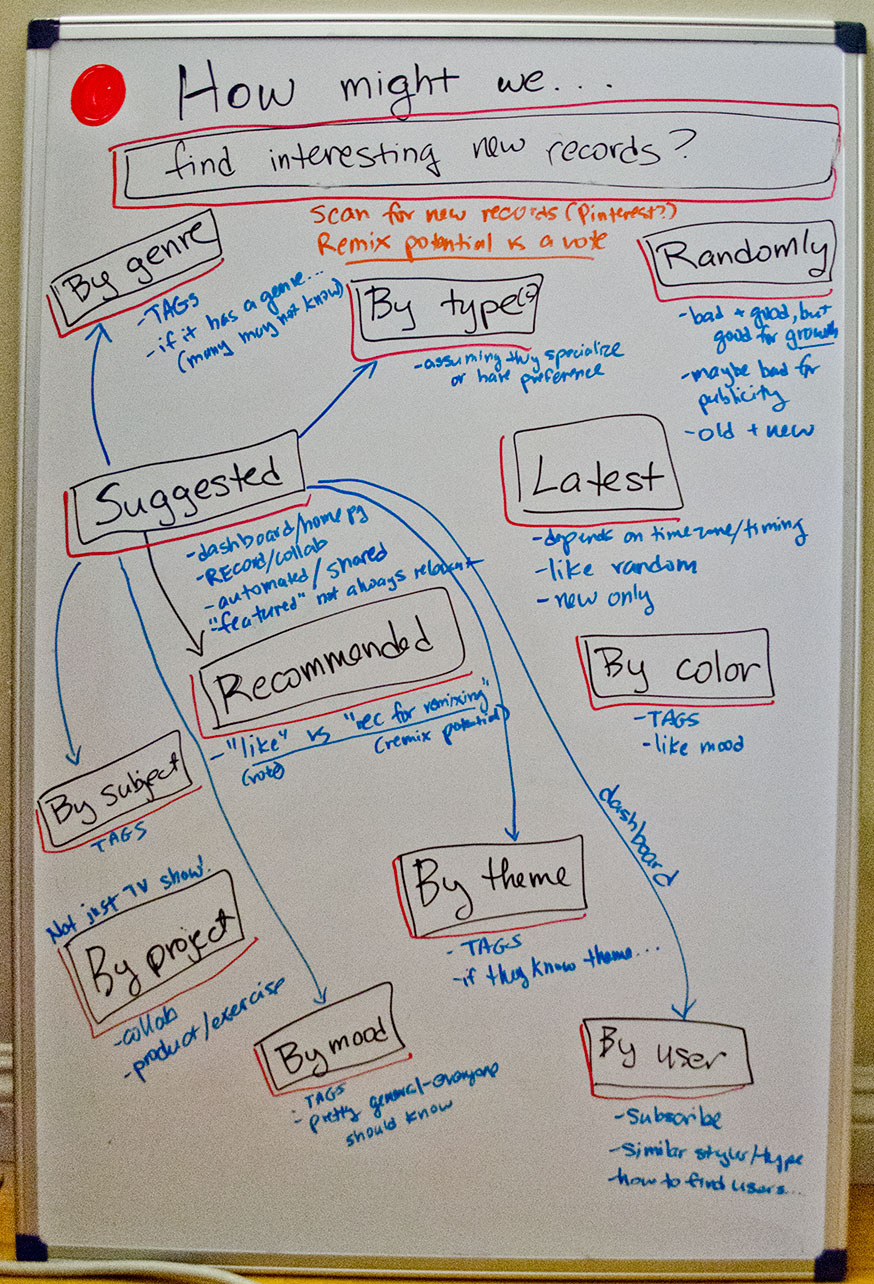 How might we...
find interesting new records?
Scan for new records (Pinterest?)
Remix potential vs a vote
By genre
-TAGS
-if it has a genre...
(many may not know)
By type(s)
-assuming they specialize
or have preference
Randomly
-bad + good, but
good for growth
-maybe bad for
publicity
-old + new
Suggested
-dashboard/home pg
-RECord/collab
-automated/shared
"featured" not always relevant
Latest
-depends on time zone/timing
-like random
-new only
Recommended
-"like" vs "rec for remixing"
(vote) (remix potential)
By color
-TAGS
-like mood
By subject
TAGS
dashboard
Not just TV show!
By project
-collab
-product/exercise
By theme
-TAGS
-if they know theme...
By mood
-TAGS
-pretty general-everyone
should know
By user
-Subscribe
-Similar styler/type
how to find users...